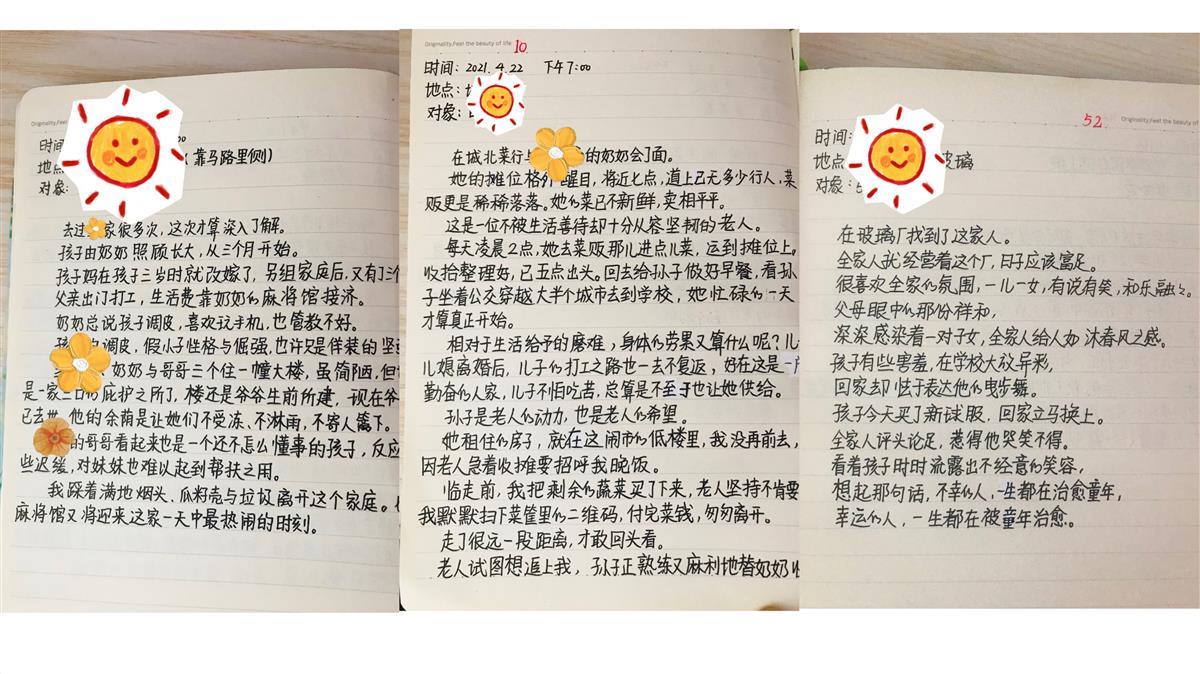 Originality,Feel
时间: 00
地点 (靠马路里侧)
对象:
去过 家很多次，这次才算深入了解。
孩子由奶奶照顾长大，从三个月开始。
孩子妈在孩子三岁时就改嫁了，另组家庭后，又有了三个
父亲出门打工，生活费靠奶奶的麻将馆接济。
奶奶总说孩子调皮，喜欢玩手机，也管教不好。
孩 调皮，假小子性格与倔强，也许只是佯装的坚
奶奶与哥哥三个住一幢大楼，虽简陋，但
是一家三口的庇护之所了，楼还是爷爷生前所建，现在爷
已去世，他的余荫是让她们不受冻、不淋雨，不寄人篱下。
的哥哥看起来也是一个还不怎么懂事的孩子，反应
些迟缓，对妹妹也难以起到帮扶之用。
我踩着满地烟头、瓜籽壳与垃圾离开这个家庭。
麻将馆又将迎来这家一天中最热闹的时刻。
Originality,Feel the beauty of life
10
时间：2021.4.22 下午7:00
地点：
对象：
在城北菜行与 的奶奶会了面。
她的摊位格外醒目，将近七点，道上已无多少行人，菜
贩更是稀稀落落。她的菜已不新鲜，卖相平平。
这是一位不被生活善待却十分从容坚韧的老人。
每天凌晨2点，她去菜贩那儿进点儿菜，运到摊位上。
收拾整理好，已五点出头。回去给孙子做好早餐，看孙
子坐着公交穿越大半个城市去到学校，她忙碌的一天
才算真正开始。
相对于生活给予的磨难，身体的劳累又算什么呢？儿
儿媳离婚后，儿子的打工之路也一去不复返，好在这是一
勤奋的人家，儿子不怕吃苦，总算是不至于也让她供给。
孙子是老人的动力，也是老人的希望。
她租住的房子，就在这闹市的低楼里，我没再前去，
因老人急着收摊要招呼我晚饭。
临走前，我把剩余的蔬菜买了下来，老人坚持不肯要
我默默扫下菜筐里的二维码，付完菜钱，匆匆离开。
走了很远一段距离，才敢回头看。
老人试图想追上我，孙子正熟练又麻利地替奶奶收
52.
Originality,Feel the beauty of
时间:
地点 玻璃
对象:
在玻璃厂找到了这家人。
全家人就经营着这个厂，日子应该富足。
很喜欢全家的氛围，一儿一女，有说有笑，和乐融融。
父母眼中的那份祥和，
深深感染着一对子女，全家人给人如沐春风之感。
孩子有些害羞，在学校大放异彩，
回家却怯于表达他的曳步舞。
孩子今天买了新球服，回家立马换上。
全家人评头论足，惹得他哭笑不得。
看着孩子时时流露出不经意的笑容，
想起那句话，不幸的人，一生都在治愈童年，
幸运的人，一生都在被童年治愈。